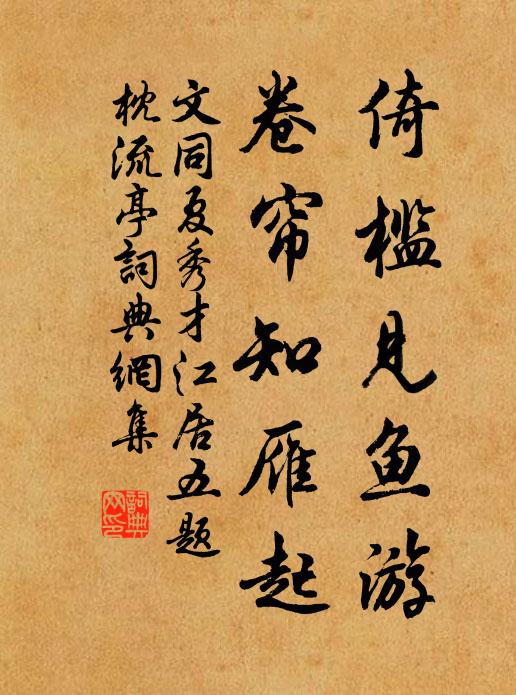 倚槛见鱼游
卷帘知雁起
文同夏秀才江居五题
枕流亭詞典網集
詞典网印